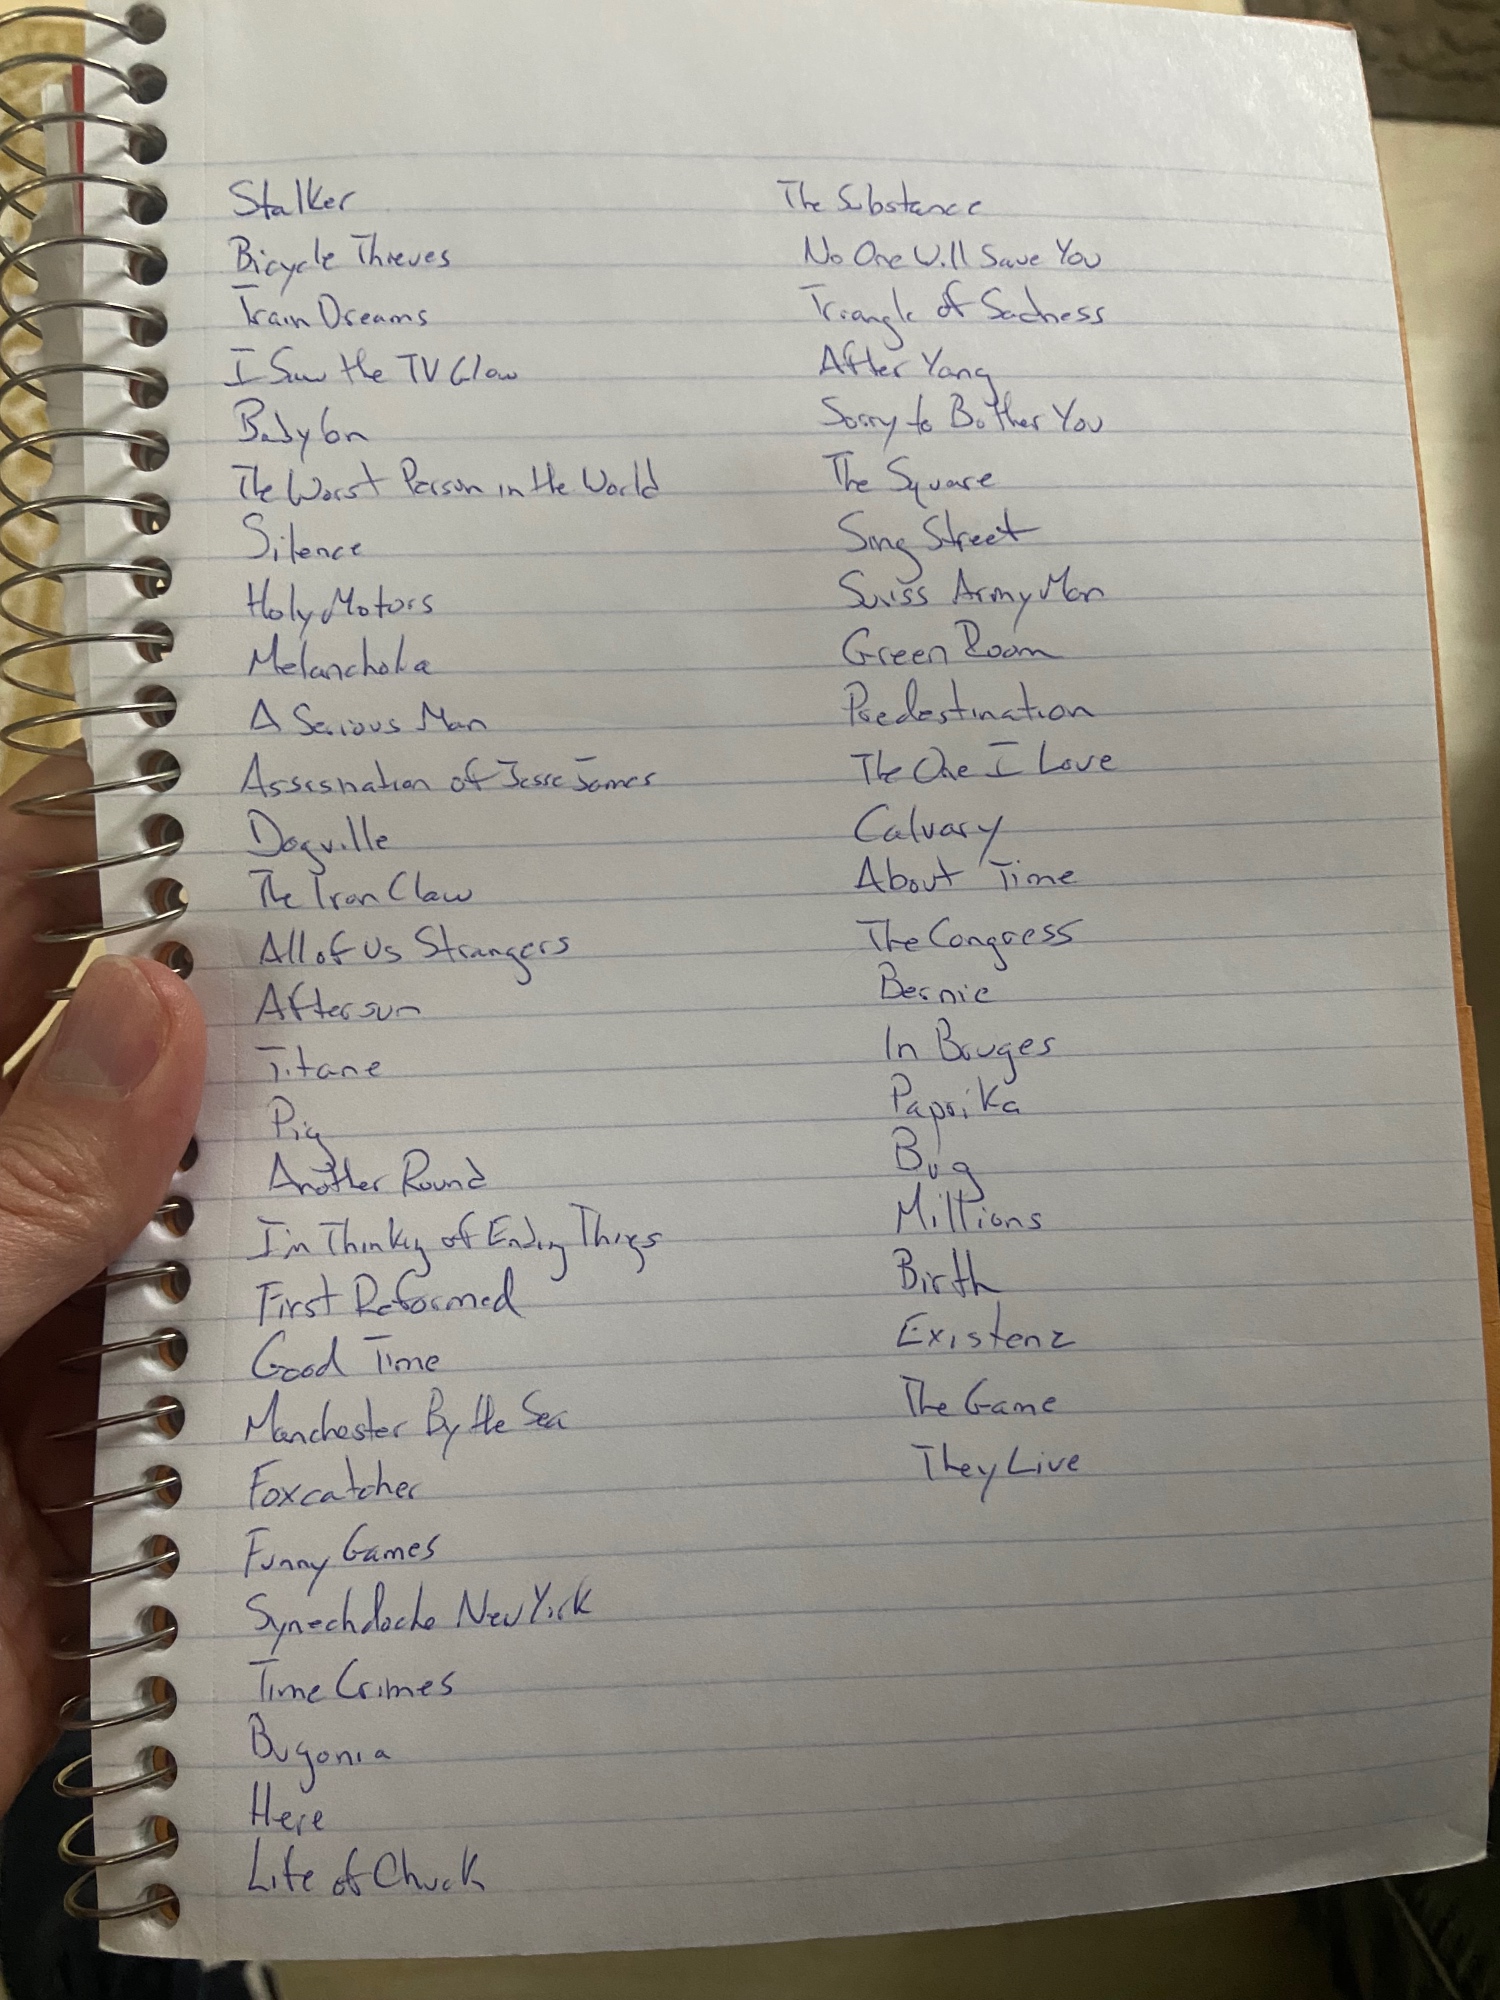 Stalker
Bicycle Thieves
Train Dreams
I Saw the TV Glow
Babylon
The Worst Person in the World
Silence
Holy Motors
Melancholia
A Serious Man
Assasination of Jesse James
Dogville
The Iron Claw
All of Us Strangers
Aftersun
Titane
Pig
Another Round
I'm Thinking of Ending Things
First Reformed
Good Time
Manchester By the Sea
Foxcatcher
Funny Games
Synechdoche New York
Time Crimes
Bugonia
Here
Life of Chuck
The Substance
No One Will Save You
Triangle of Sadness
After Yang
Sorry to Bother You
The Square
Sing Street
Swiss Army Man
Green Room
Predestination
The One I Love
Calvary
About Time
The Congress
Bernie
In Bruges
Paprika
Bug
Millions
Birth
Existenz
The Game
They Live